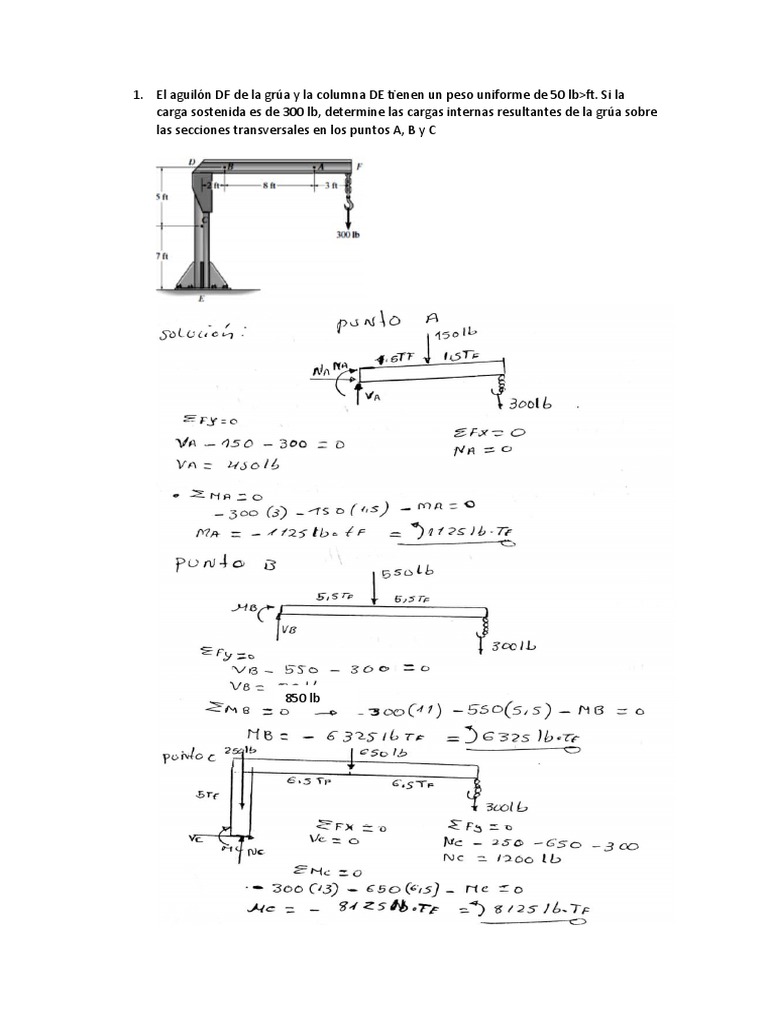 1. El aguilón DF de la grúa y la columna DE tienen un peso uniforme de 50 lb>ft. Si la
carga sostenida es de 300 lb, determine las cargas internas resultantes de la grúa sobre
las secciones transversales en los puntos A, B y C
D B A F
2 ft 8 ft 3 ft
5 ft
C
300 lb
7 ft
E
Solución:
punto A
150lb
1.5TF 1,5TF
NA MA
VA
300lb
ΣFy=0
VA - 150 - 300 = 0
VA = 450lb
ΣFx=0
NA = 0
• ΣMA=0
-300(3) - 150(1,5) - MA = 0
MA = -1125 lb•tF = 1125 lb.TF
punto B
550lb
5,5TF 5,5TF
MB
VB
300lb
ΣFy=0
VB - 550 - 300 = 0
VB =
850 lb
ΣMB = 0 → -300(11) - 550(5,5) - MB = 0
MB = - 6325 lb TF = 6325 lb•TF
punto C
250lb
650lb
6.5TF 6.5TF
5TF
300lb
VC
MC
NC
ΣFx=0
Vc=0
ΣFy=0
Nc - 250 - 650 - 300
Nc = 1200 lb
ΣMc=0
- 300(13) - 650(6,5) - Mc = 0
Mc = - 8125 lb.TF = 8125 lb.TF